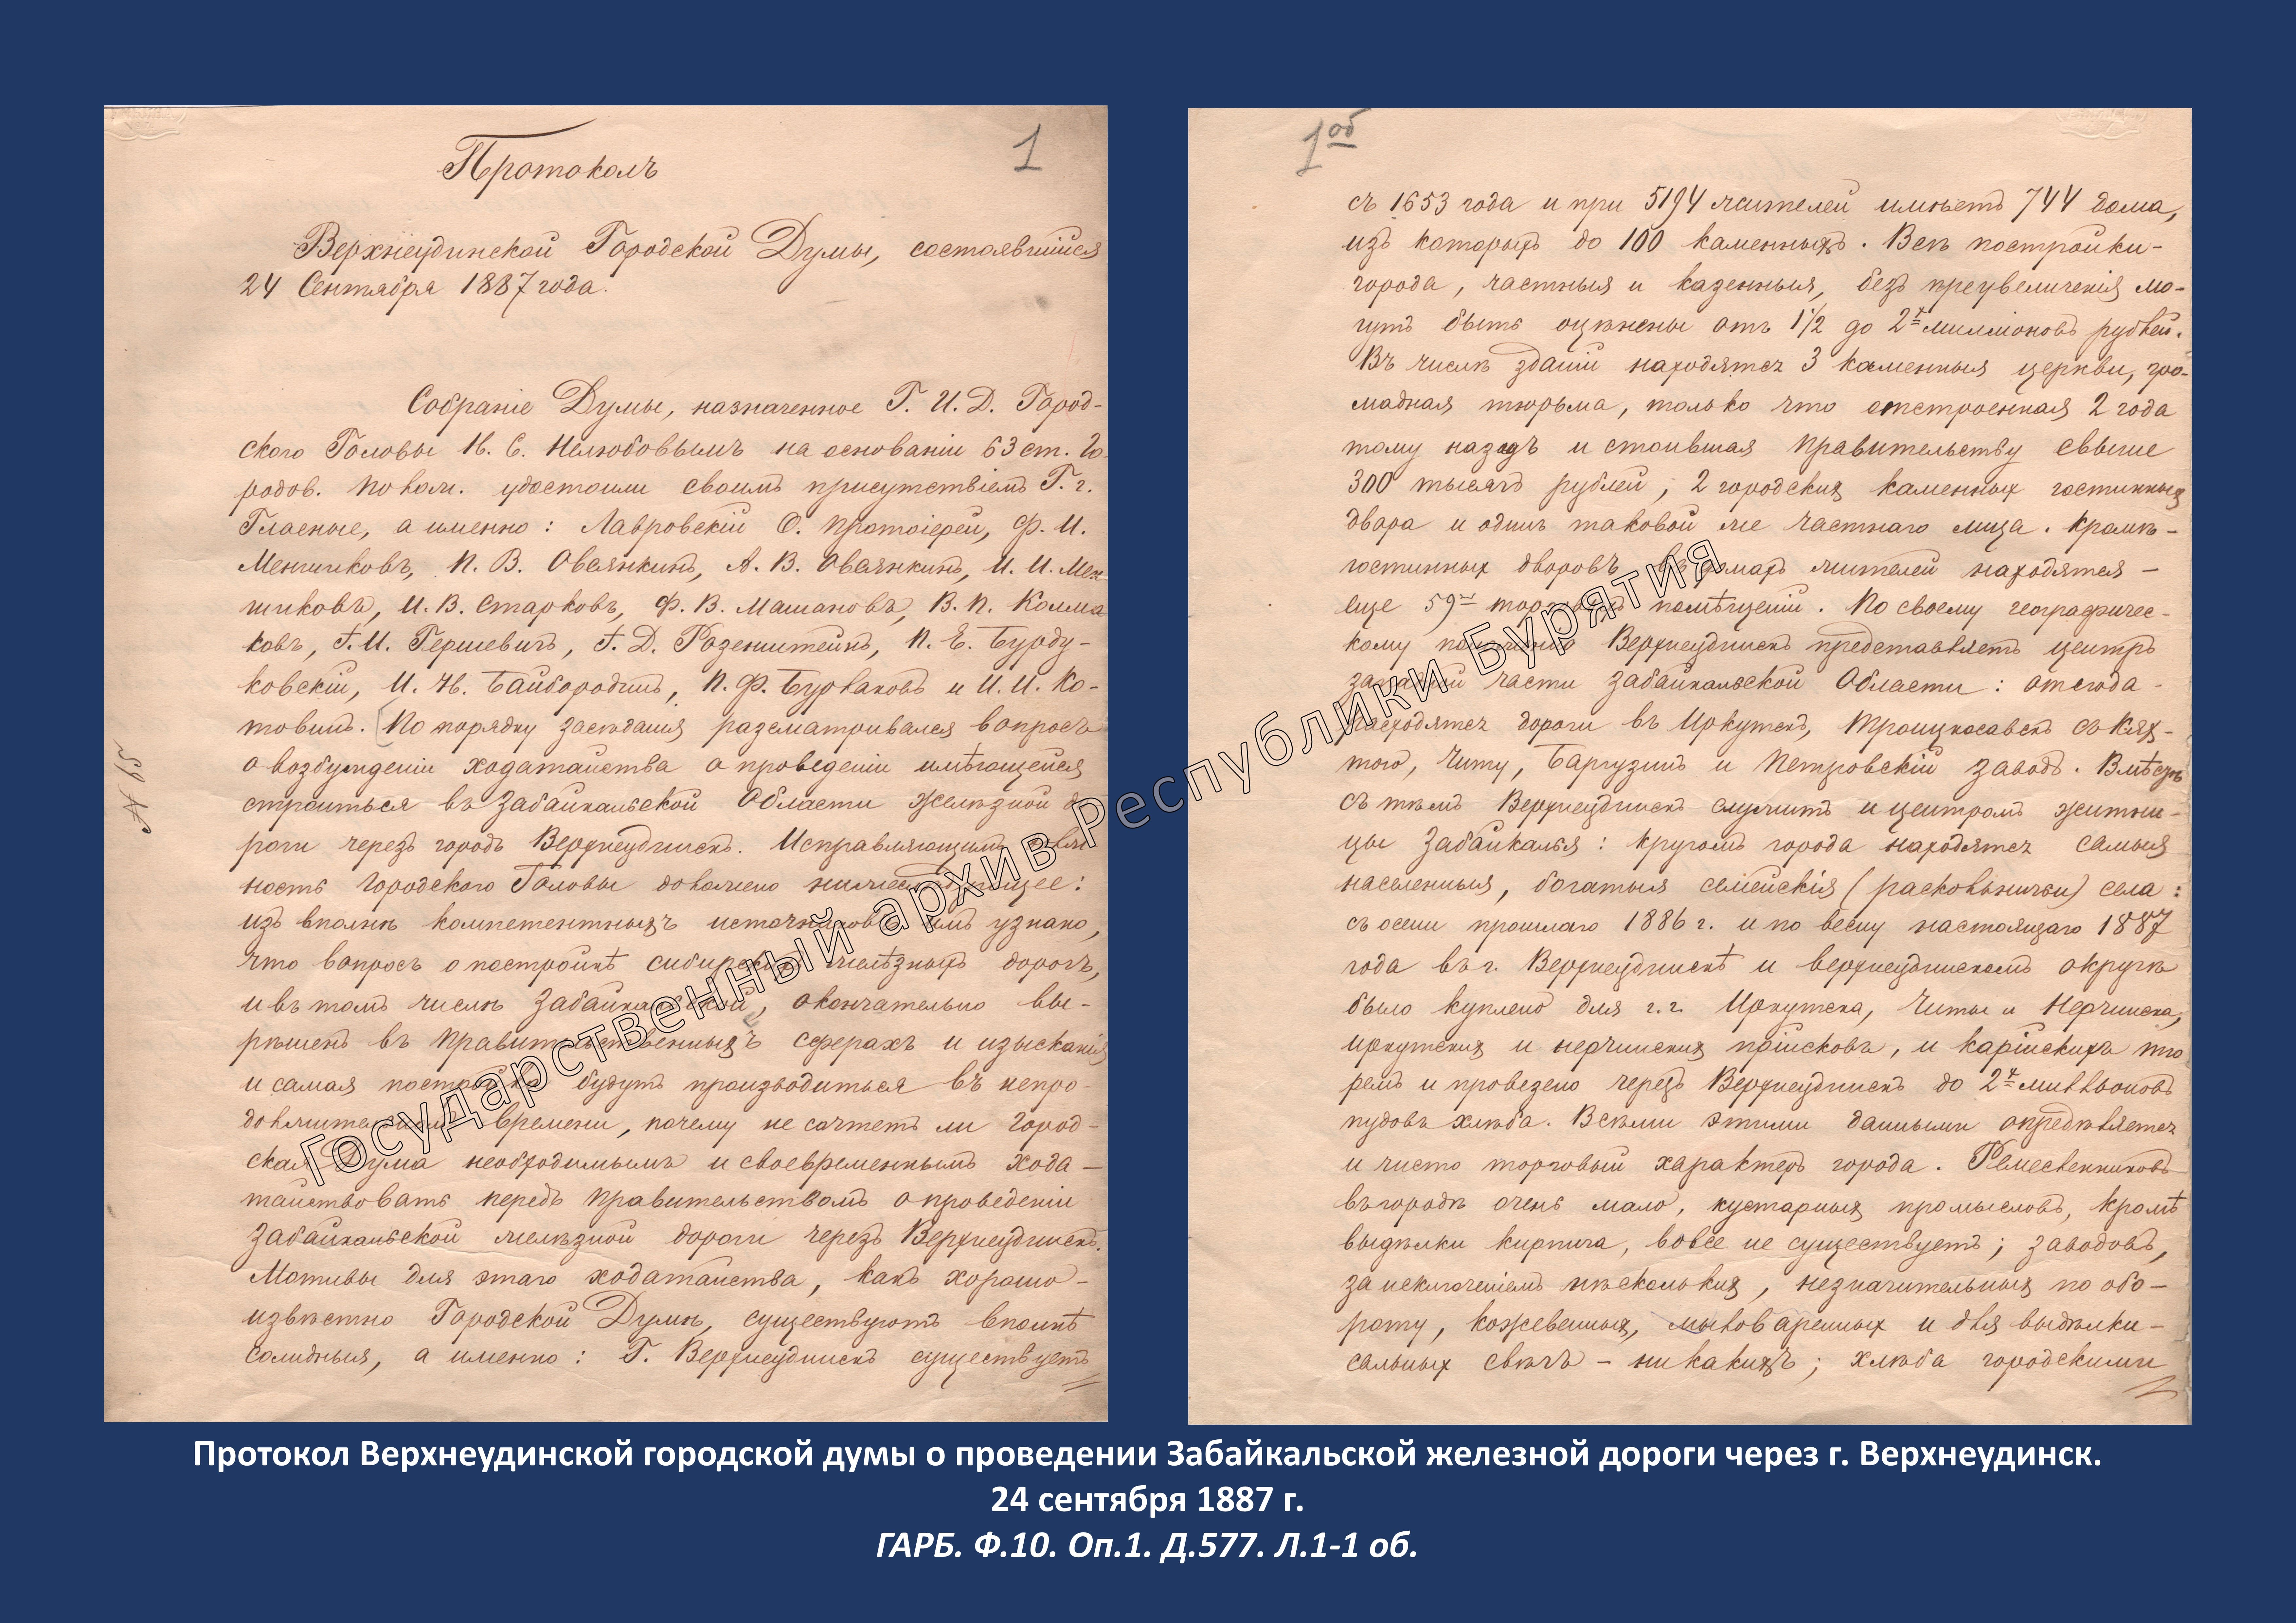 1
Протоколъ
Верхнеудинской Городской Думы, состоявшійся
24 Сентября 1887 года.
Собраніе Думы, назначенное Г. И. Д. Город-
ского Головы И. С. Нелюбовымъ на основаніи 63 ст. Го-
родов. Полож. удостоили своимъ присутствіемъ Г. г.
Гласные, а именно: Лавровскій О. Протоіерей, Ф. И.
Меншиковъ, П. В. Овсянкинъ, А. В. Овсянкинъ, И. И. Мен-
шиковъ, И. В. Старковъ, Ф. В. Машановъ, В. П. Колма
ковъ, И. Гершевичъ, Д. Розенштейнъ, П. Е. Бурду-
ковскій, И. Байбородинъ, П. Ф. Бурлаковъ и И. И. Ко-
товинъ. По порядку засѣданія разсматривался вопросъ
о возбужденіи ходатайства о проведеніи имѣющейся
строиться въ Забайкальской Области желѣзной до
роги черезъ городъ Верхнеудинскъ. Исправляющимъ
ность Городского Головы доложено нижеслѣдующее:
изъ вполнѣ компетентныхъ источниковъ имъ узнано,
что вопросъ о постройкѣ сибирскихъ желѣзныхъ дорогъ,
и въ томъ числѣ Забайкальской, окончательно вы-
рѣшенъ въ правительственныхъ сферахъ и изысканія
и самая постройка будутъ производиться въ непро-
должительномъ времени, почему не сочтетъ ли Город-
ская Дума необходимымъ и своевременнымъ хода-
тайствовать передъ Правительствомъ о проведеніи
Забайкальской желѣзной дороги черезъ Верхнеудинскъ.
Мотивы для этаго ходатайства, какъ хорошо-
извѣстно Городской Думѣ, существуютъ вполнѣ
солидныя, а именно: Г. Верхнеудинскъ существуетъ
№ 65
1 об
съ 1653 года и при 5194 жителей имѣетъ 744 дома,
изъ которыхъ до 100 каменныхъ. Всѣ постройки-
города, частныя и казенныя, безъ преувеличенія мо-
гутъ быть оцѣнены отъ 1 1/2 до 2х милліоновъ рублей.
Въ числѣ зданій находятся 3 каменныя церкви, гро-
мадная тюрьма, только что отстроенная 2 года
тому назадъ и стоившая Правительству свыше
300 тысячъ рублей; 2 городскихъ каменныхъ гостинныхъ
двора и одинъ таковой же частнаго лица. Кромѣ-
гостинныхъ дворовъ въ домахъ жителей находятся-
еще 59ть торговыхъ помѣщеній. По своему географичес-
кому положенію Верхнеудинскъ представляетъ центръ
западной части Забайкальской Области: отсюда-
расходятся дороги въ Иркутскъ, Троицкосавскъ съ Кях-
тою, Читу, Баргузинъ и Петровскій заводъ. Вмѣстѣ
съ тѣмъ Верхнеудинскъ служитъ и центромъ житни-
цы Забайкалья: кругомъ города находятся самыя
населенныя, богатыя семейскія (раскольничьи) села:
съ осени прошлаго 1886 г. и по весну настоящаго 1887
года въ г. Верхнеудинскѣ и верхнеудинскомъ округѣ
было куплено для г.г. Иркутска, Читы и Нерчинска,
иркутскихъ и нерчинскихъ пріисковъ, и карійскихъ тю
ремъ и провезено черезъ Верхнеудинскъ до 2х милльоновъ
пудовъ хлѣба. Всѣми этими данными опредѣляется
и чисто торговый характеръ города. Ремесленниковъ
въ городѣ очень мало, кустарныхъ промысловъ, кромѣ
выдѣлки кирпича, вовсе не существуетъ; заводовъ,
за исключеніемъ нѣсколькихъ, незначительныхъ по обо-
роту, кожевенныхъ, мыловаренныхъ и для выдѣлки-
сальныхъ свѣчъ - никакихъ; хлѣба городскими
Государственный архив Республики Бурятия
Протокол Верхнеудинской городской думы о проведении Забайкальской железной дороги через г. Верхнеудинск.
24 сентября 1887 г.
ГАРБ. Ф.10. Оп.1. Д.577. Л.1-1 об.